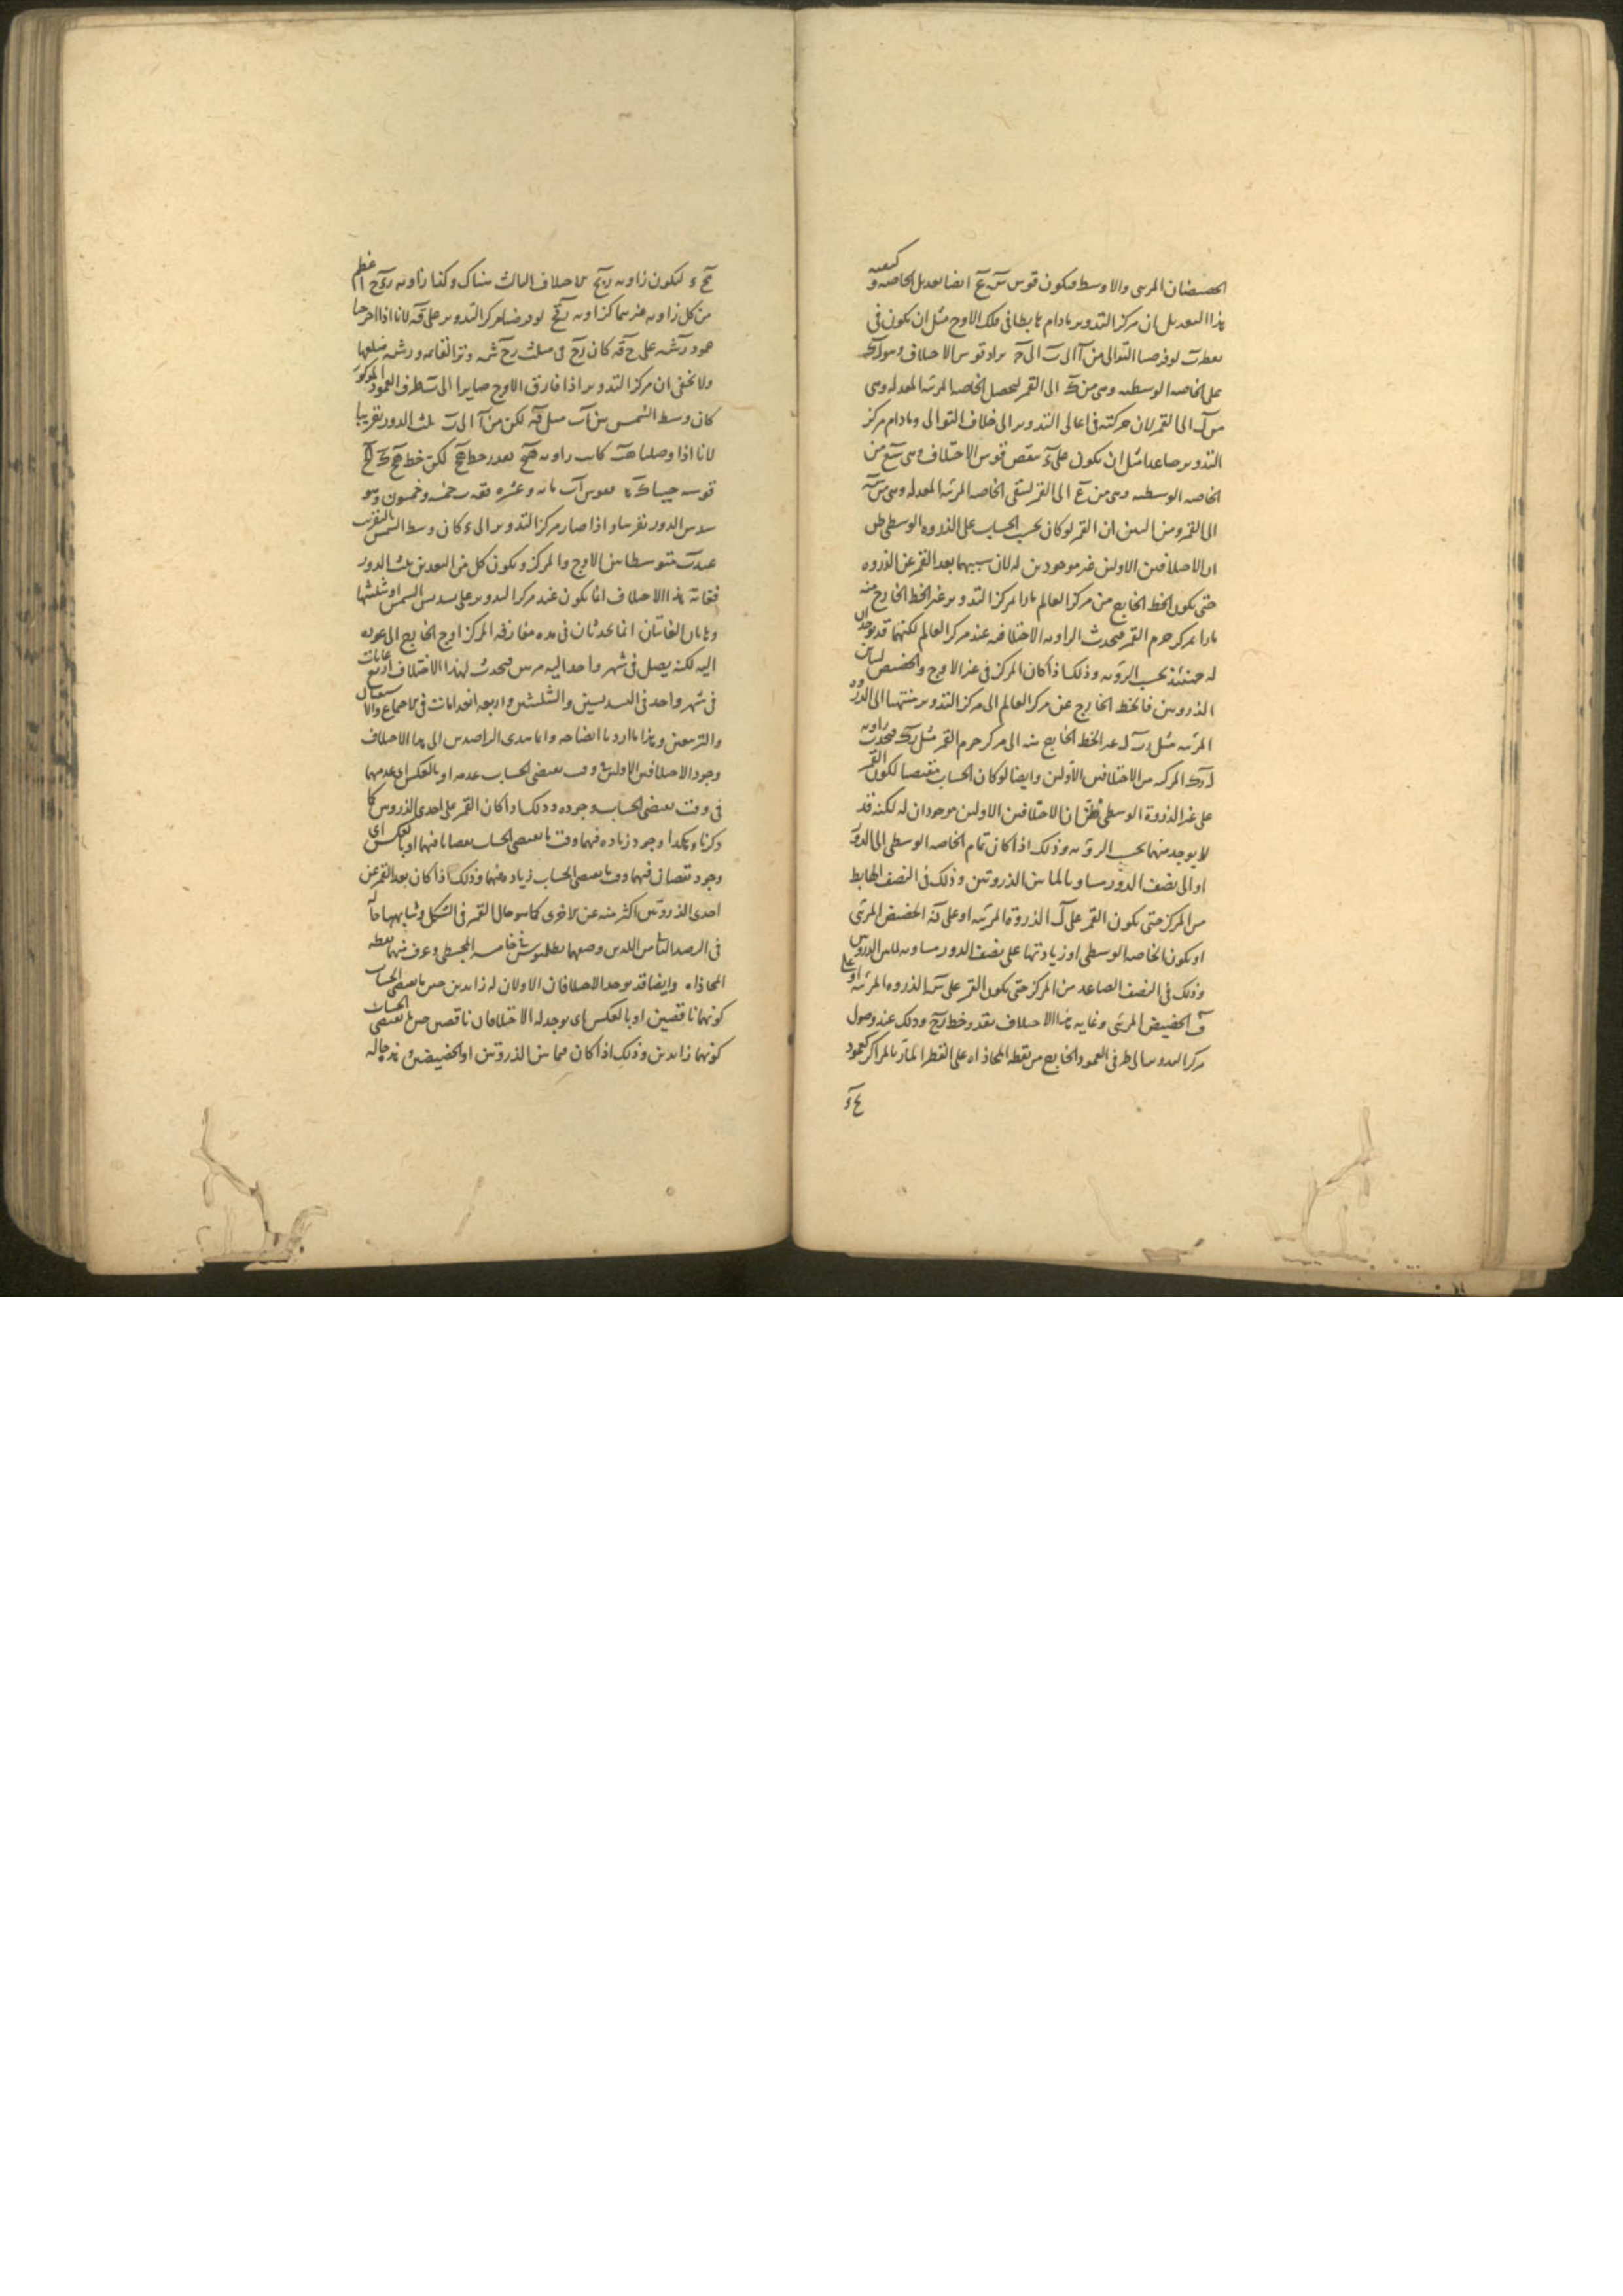 الحضيضان المرئى والاوسط فيكون قوس س ع ايضا تعديل الخاصه وكيفيه
هذا التعديل ان مركز التدوير مادام هابطا فى فلك الاوج مثل ان يكون فى
نقطه ب لو فرضنا التوالى من آ الى ب الى ج يزاد قوس الاختلاف وهو
على الخاصه الوسطيه وهى من ك الى القمر ليحصل الخاصه المرئيه المعدله وهى
من ل الى القمر لان حركته فى اعالى التدوير الى خلاف التوالى ومادام مركز
التدوير صاعدا مثل ان يكون على ء ينقص قوس الاختلاف وهى س ع من
الخاصه الوسطيه وهى من ع الى القمر لتبقى الخاصه المرئيه المعدله وهى من س
الى القمر ومن البين ان القمر لو كان بحسب الحساب على الذروه الوسطى ظن
ان الاختلافين الاولين غير موجودين له لان سببهما بعد القمر عن الذروه
حتى يكون الخط الخارج من مركز العالم مارا بمركز التدوير غير الخط الخارج منه
مارا بمركز جرم القمر فيحدث الزاويه الاختلافيه عند مركز العالم لكنهما قد يوجدان
له حينئذ بحسب الرؤيه وذلك اذا كان المركز فى غير الاوج والحضيض لتباين
الذروتين فالخط الخارج عن مركز العالم الى مركز التدوير منتهيا الى الذروه
المرئيه مثل ر ب ل غير الخط الخارج منه الى مركز جرم القمر مثل ر ك فيحدث زاويه
ل ر ك المركبه من الاختلافين الاولين وايضا لو كان الحساب مقتضيا لكون القمر
على غير الذروة الوسطى فظن ان الاختلافين الاولين موجودان له لكنه قد
لا يوجد منهما بحسب الرؤيه وذلك اذا كان تمام الخاصه الوسطى الى الدور
او الى نصف الدور مساويا لما بين الذروتين وذلك فى النصف الهابط
من المركز حتى يكون القمر على ل الذروة المرئيه او على الحضيض المرئى
او يكون الخاصه الوسطى او زيادتها على نصف الدور مساويه لما بين الذروتين
وذلك فى النصف الصاعد من المركز حتى يكون القمر على س الذروه المرئيه او على
ف الحضيض المرئى وغايه هذا الاختلاف بقدر خط ر ح وذلك عند وصول
مركز التدوير الى طرفى العمود الخارج من نقطه المحاذاه على القطر المار بالمراكز كعمود
ح ء
ح ء ليكون زاويه ر ب ح الاختلاف الثالث هناك وكذا زاويه ر ء ح اعظم
من كل زاويه غيرهما كزاويه ر ق ح لو فرضنا مركز التدوير على ق لانا اذا اخرجنا
عمود ر ش على ح ق كان ر ح فى مثلث ر ح ش وتر القايمه و ر ش ضلعها
ولا يخفى ان مركز التدوير اذا فارق الاوج صايرا الى ب طرف العمود المذكور
كان وسط الشمس بين آ ب مثل ق لكن من آ الى ب ثلث الدور تقريبا
لانا اذا وصلنا ه ب كانت زاويه ه ح بقدر خط ه ح لكن خط ه ح
قوسه فقوس آ ب مائه وعشره ق ب خمسه وخمسون وهو
سدس الدور تقريبا واذا صار مركز التدوير الى ء كان وسط الشمس بالتقريب
عند ب متوسطا بين الاوج والمركز ويكون كل من البعدين ثلث الدور
فغاية هذا الاختلاف انما يكون عند مركز التدوير على تسديس الشمس او تثليثها
وهاتان الغايتان انما تحدثان فى مده مفارقه المركز اوج الخارج الى عوده
اليه لكنه يصل فى شهر واحد اليه مرتين فيحدث لهذا الاختلاف اربع غايات
فى شهر واحد فى التسديسين والتثليثين واربعه انعدامات فى الاجتماع والاستقبال
والتربيعين وهذا ما اردنا ايضاحه وانما هدى الراصدين الى هذا الاختلاف
وجود الاختلافين الاولين فى وقت يقتضى الحساب عدمه او بالعكس اى عدمهما
فى وقت يقتضى الحساب وجوده وذلك اذا كان القمر على احدى الذروتين كما
ذكرنا وهكذا وجود زياده فيهما وقت ما يقتضى الحساب نقصانا فيهما او بالعكس اى
وجود نقصان فيهما وقت ما يقتضى الحساب زياده فيهما وذلك اذا كان بعد القمر عن
احدى الذروتين اكثر منه عن الاخرى كما هو حال القمر فى الشكل وشابهها حاله
فى الرصد الثامن اللذين وضعهما بطلميوس فى خامسه المجسطى وعرف منهما نقطه
المحاذاه وايضا قد يوجد الاختلافان الاولان له زايدين حين ما يقتضى الحساب
كونهما ناقصين او بالعكس اى يوجد له الاختلافان ناقصين حين ما يقتضى الحساب
كونهما زايدين وذلك اذا كان فيما بين الذروتين او الحضيضين وهذه حاله